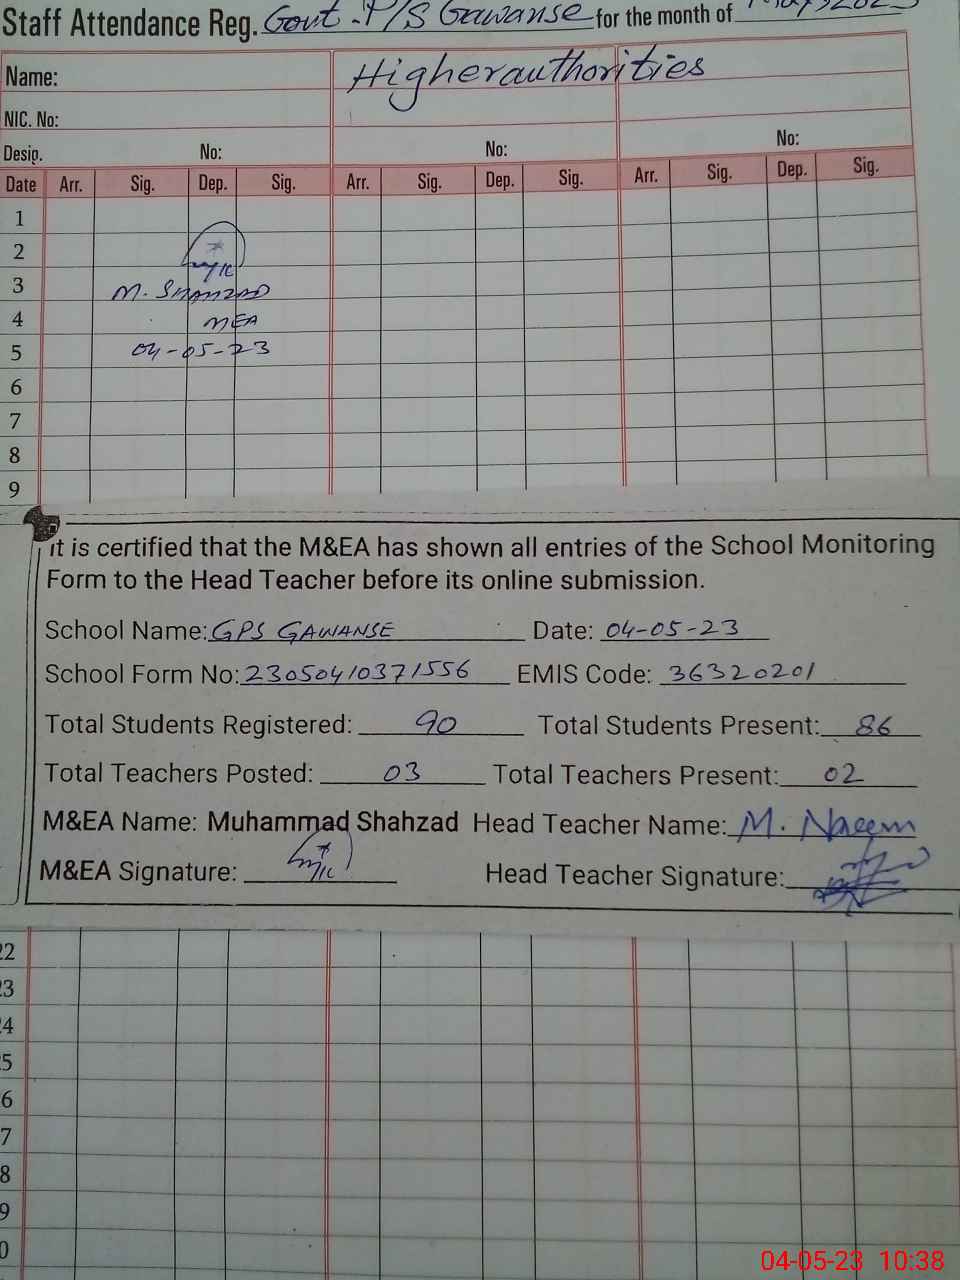 Staff Attendance Reg. Govt. P/S Gawanse for the month of May 2023
Higher authorities
Name:
NIC. No:
Desig. No: No: No:
Date Arr. Sig. Dep. Sig. Arr. Sig. Dep. Sig. Arr. Sig. Dep. Sig.
1
2
3 M. SHAHZAD
4 MEA
5 04-05-23
6
7
8
9
it is certified that the M&EA has shown all entries of the School Monitoring
Form to the Head Teacher before its online submission.
School Name: GPS GAWANSE Date: 04-05-23
School Form No: 23050410371556 EMIS Code: 36320201
Total Students Registered: 90 Total Students Present: 86
Total Teachers Posted: 03 Total Teachers Present: 02
M&EA Name: Muhammad Shahzad Head Teacher Name: M. Naeem
M&EA Signature: Head Teacher Signature:
22
23
24
5
6
7
8
9
0
04-05-23 10:38